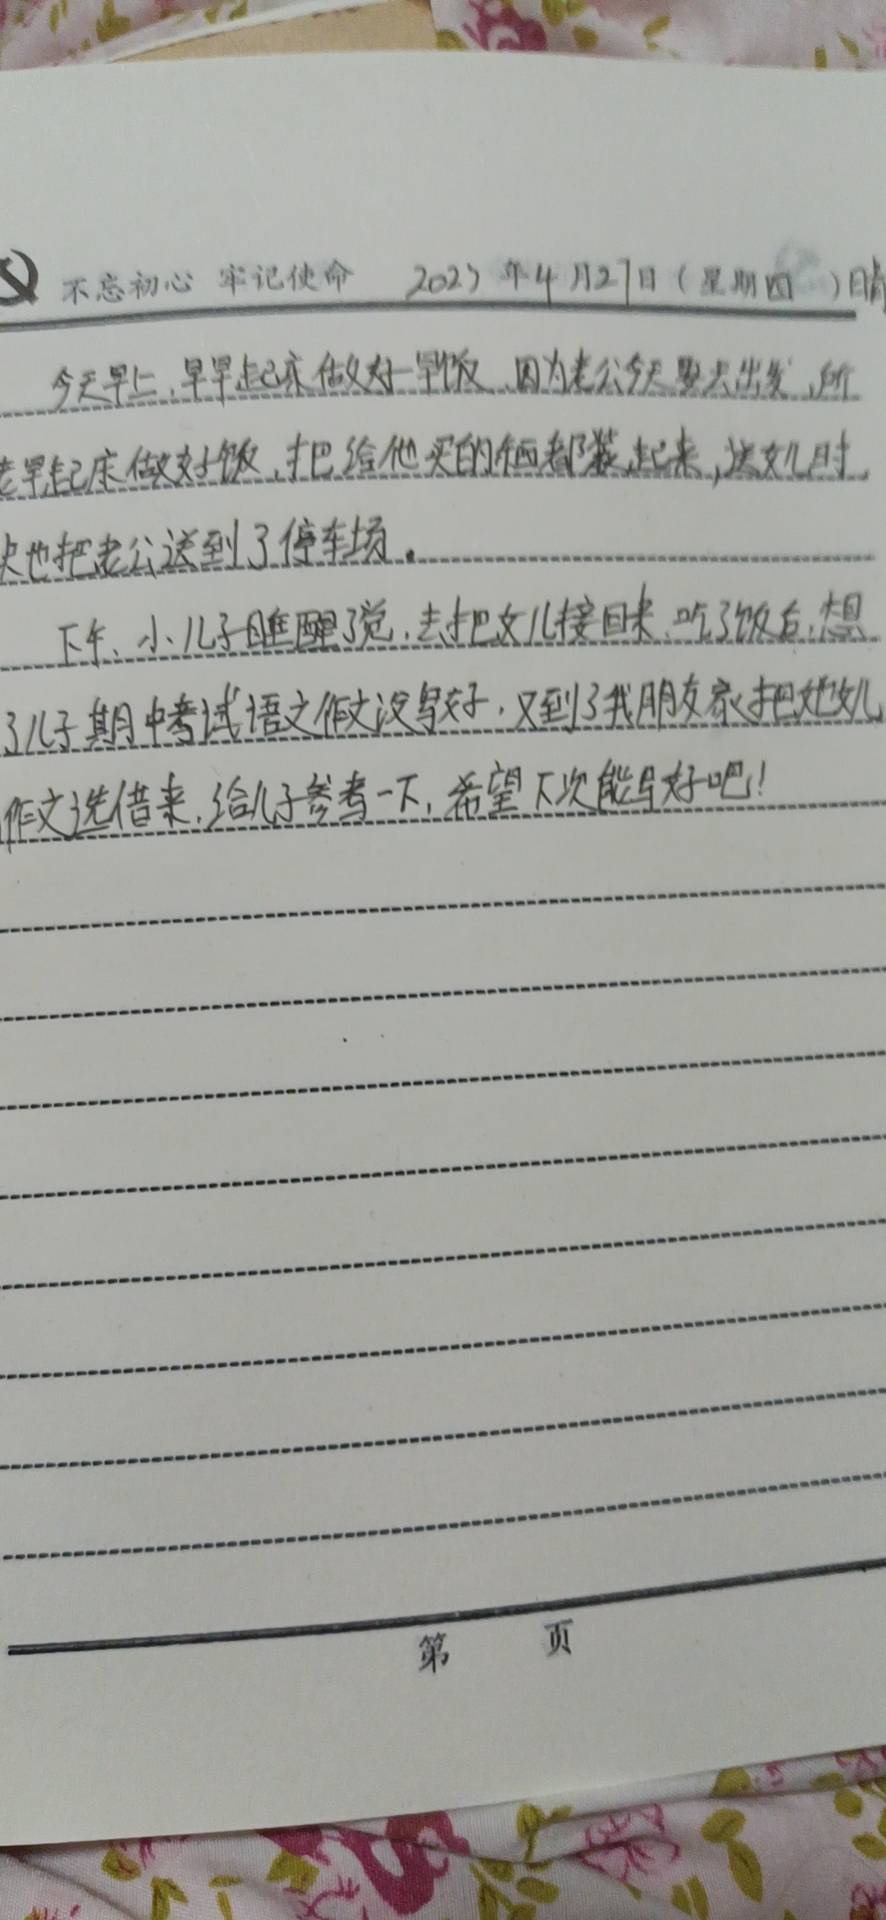 不忘初心 牢记使命 2023年4月27日（星期四）晴
今天早上，早早起床做好早饭，因为老公今天要去出发，所
早起床做好饭，把给他买的东西都装起来，送女儿时，
也把老公送到了停车场。
下午，小儿子睡醒了觉，去把女儿接回来，吃了饭后，想
了儿子期中考试语文作文没写好，又到了我朋友家把她女儿
作文选借来，给儿子参考一下，希望下次能写好吧！
第 页